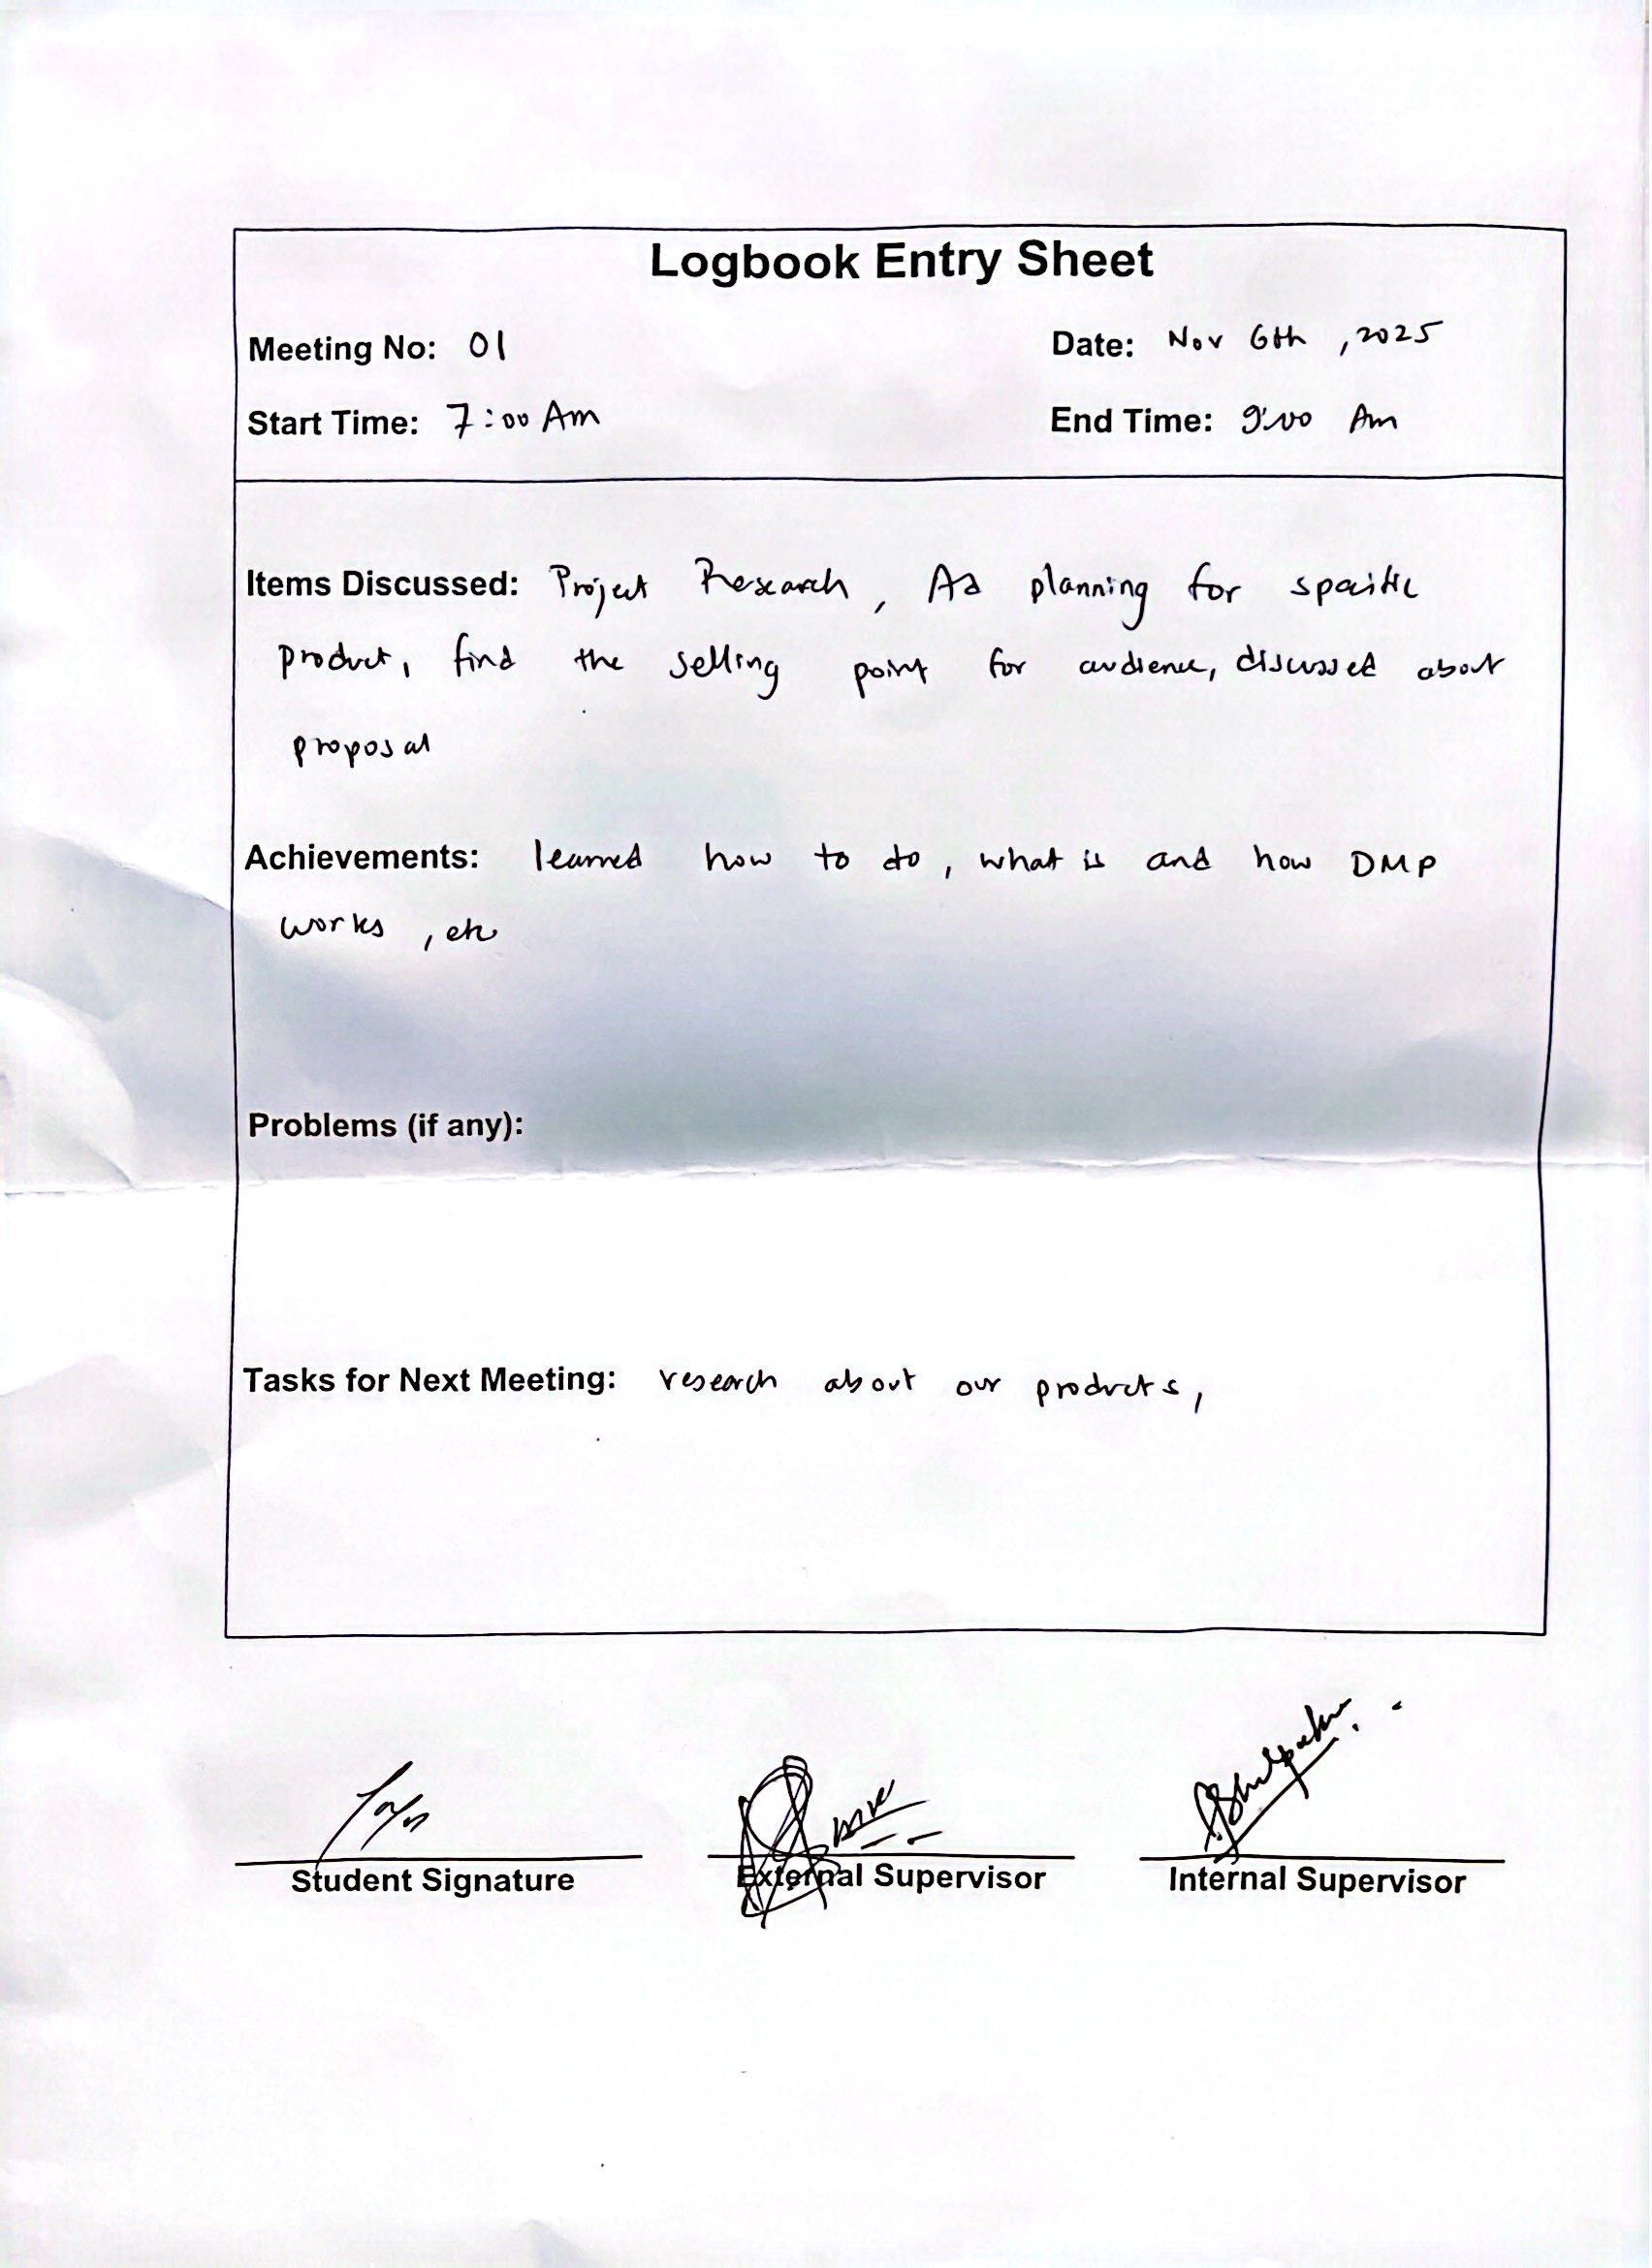 Logbook Entry Sheet
Meeting No: 01
Date: Nov 6th , 2025
Start Time: 7:00 Am
End Time: 9:00 Am
Items Discussed: Project Research, Ad planning for specific
product, find the selling point for audience, discussed about
proposal
Achievements: learned how to do, what is and how DMP
works, etc
Problems (if any):
Tasks for Next Meeting: research about our products,
Student Signature
External Supervisor
Internal Supervisor